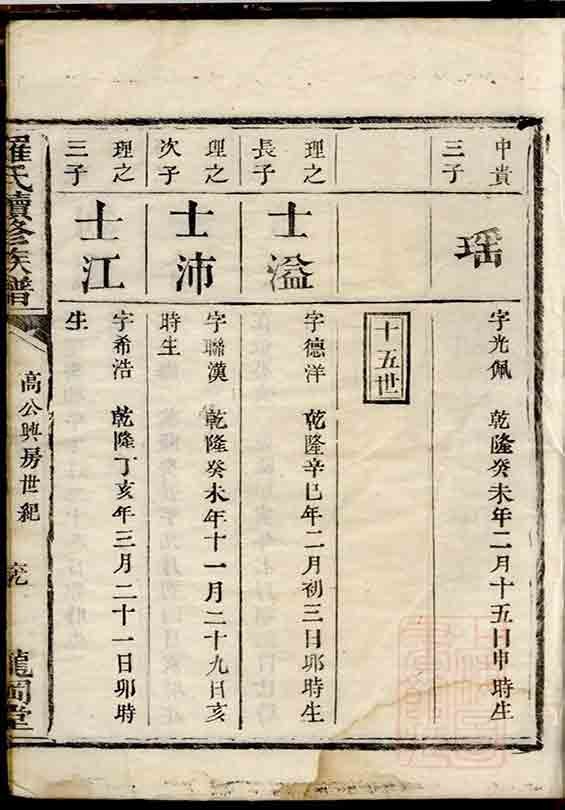 中貴
三子
瑶
字光佩 乾隆癸未年二月十五日申時生
十五世
理之
長子
士溢
字德洋 乾隆辛巳年二月初三日卯時生
理之
次子
士沛
字聯漢 乾隆癸未年十一月二十九日亥
時生
理之
三子
士江
字希浩 乾隆丁亥年三月二十一日卯時
生
羅氏續修族譜
高公興房世紀
龍岡堂